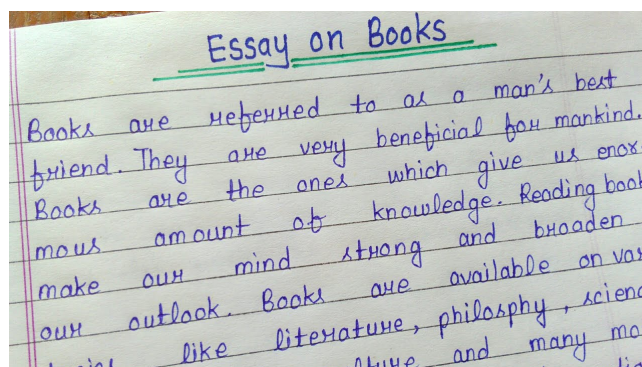 Essay on Books
Books are referred to as a man's best
friend. They are very beneficial for mankind.
Books are the ones which give us enor
mous amount of knowledge. Reading book
make our mind strong and broaden
our outlook. Books are available on var
like literature, philosphy, scienc
and many mo